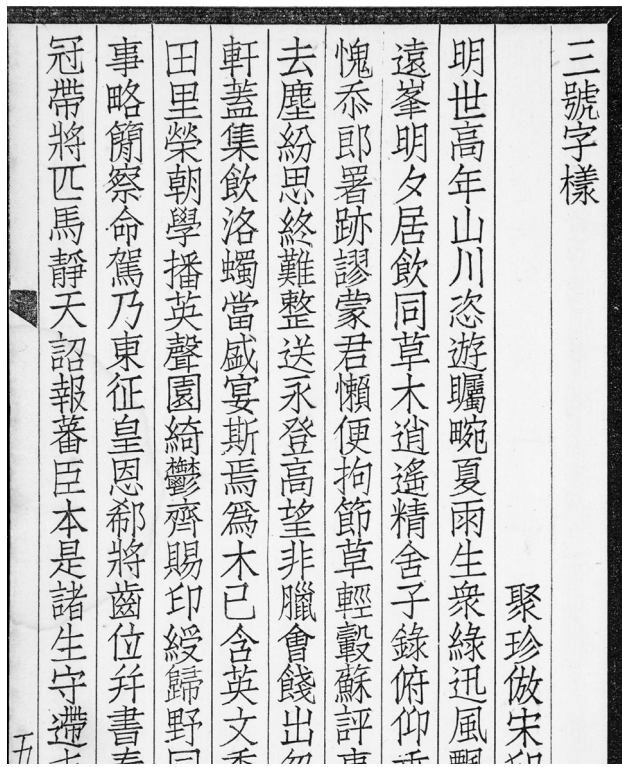 三號字樣
聚珍倣宋印
明世高年山川恣遊矚晼夏雨生衆綠迅風飄
遠峯明夕居飲同草木逍遙精舍子錄俯仰垂
愧忝郎署跡謬蒙君懶便拘節草輕轂蘇評事
去塵紛思終難整送永登高望非臘會餞出忽
軒蓋集飲洛蠋當盛宴斯焉爲木已含英文香
田里榮朝學播英聲園綺鬱齊賜印綬歸野同
事略簡察命駕乃東征皇恩郗將齒位幷書春
冠帶將匹馬靜天詔報蕃臣本是諸生守遰
五